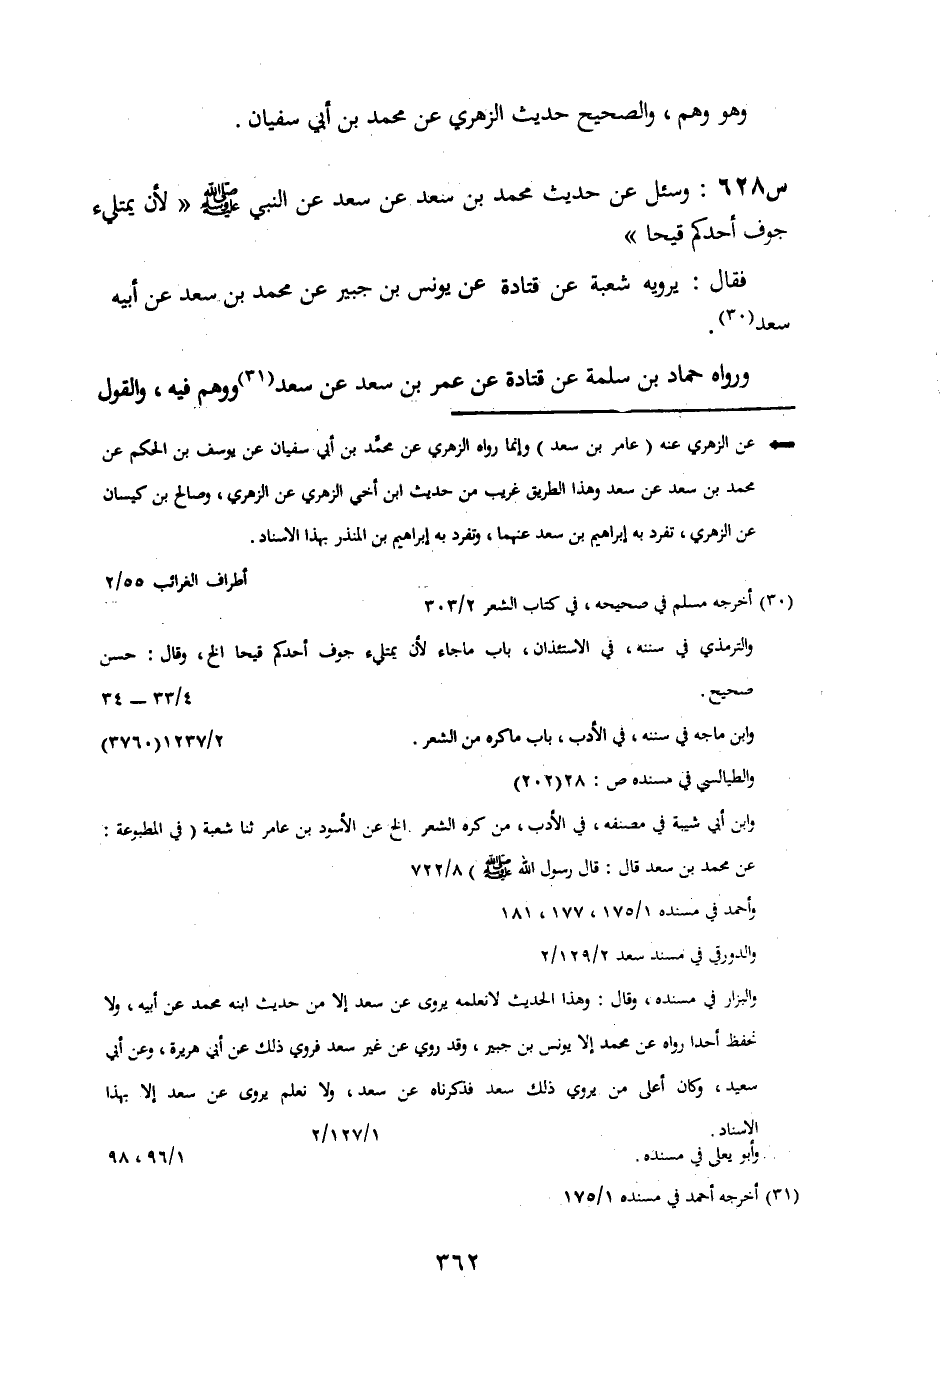 وهو وهم ، والصحيح حديث الزهري عن محمد بن أبي سفيان .
س٦٢٨ : وسئل عن حديث محمد بن سعد عن سعد عن النبي ﷺ « لأن يمتليء
جوف أحدكم قيحا »
فقال : يرويه شعبة عن قتادة عن يونس بن جبير عن محمد بن سعد عن أبيه
سعد(٣٠) .
ورواه حماد بن سلمة عن قتادة عن عمر بن سعد عن سعد(٣١) ووهم فيه ، والقول
عن الزهري عنه ( عامر بن سعد ) وإنما رواه الزهري عن محمَّد بن أبي سفيان عن يوسف بن الحكم عن
محمد بن سعد عن سعد وهذا الطريق غريب من حديث ابن أخي الزهري عن الزهري ، وصالح بن كيسان
عن الزهري ، تفرد به إبراهيم بن سعد عنهما ، وتفرد به إبراهيم بن المنذر بهذا الاسناد .
أطراف الغرائب ٢/٥٥
(٣٠) أخرجه مسلم في صحيحه ، في كتاب الشعر ٣٠٣/٢
والترمذي في سننه ، في الاستئذان ، باب ماجاء لأن يمتليء جوف أحدكم قيحا الخ ، وقال : حسن
صحيح . ٣٣/٤ – ٣٤
وابن ماجه في سننه ، في الأدب ، باب ماكره من الشعر . ١٢٣٧/٢(٣٧٦٠)
والطيالسي في مسنده ص : ٢٨(٢٠٢)
وابن أبي شيبة في مصنفه ، في الأدب ، من كره الشعر الخ عن الأسود بن عامر ثنا شعبة ( في المطبوعة :
عن محمد بن سعد قال : قال رسول الله ﷺ ) ٧٢٢/٨
وأحمد في مسنده ١٧٥/١ ، ١٧٧ ، ١٨١
والدورقي في مسند سعد ٢/١٢٩/٢
والبزار في مسنده ، وقال : وهذا الحديث لانعلمه يروى عن سعد إلا من حديث ابنه محمد عن أبيه ، ولا
نحفظ أحدا رواه عن محمد إلا يونس بن جبير ، وقد روي عن غير سعد فروي ذلك عن أبي هريرة ، وعن أبي
سعيد ، وكان أعلى من يروي ذلك سعد فذكرناه عن سعد ، ولا نعلم يروى عن سعد إلا بهذا
الاسناد . ٢/١٢٧/١
وأبو يعلى في مسنده . ٩٦/١ ، ٩٨
(٣١) أخرجه أحمد في مسنده ١٧٥/١
٣٦٢